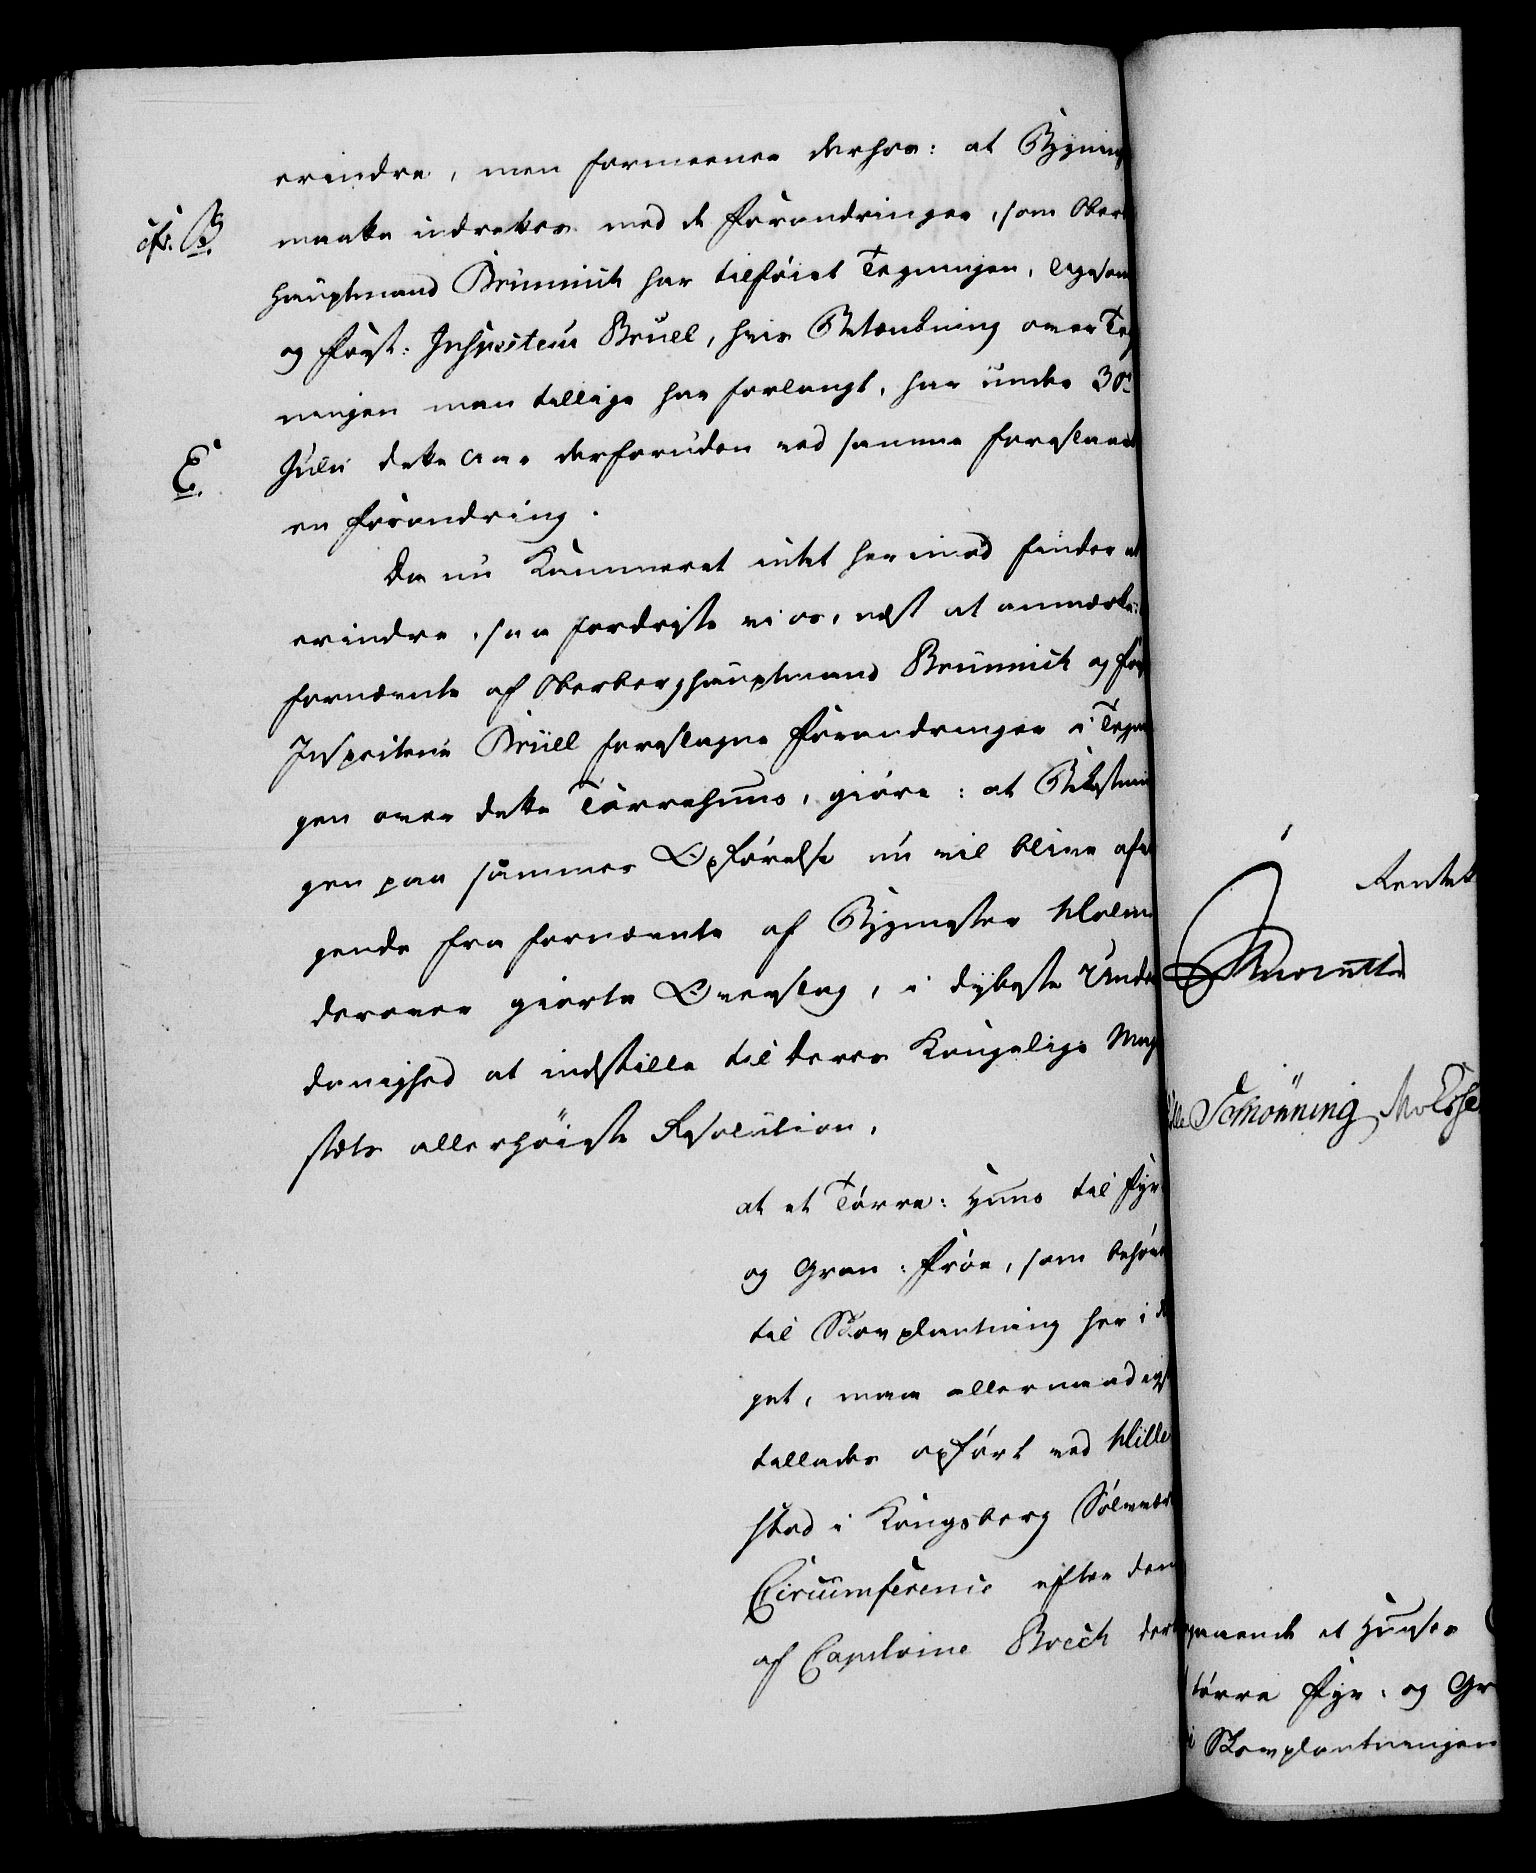 erindre, men formeener derhos: at Bygning
cfr. B.
maatte indrettes med de Forandringer, som Ober
hauptmand Brünnich har tilføiet Tegningen, ligesom
og Forst: Inspecteur Brüel, hvis Betænkning over Teg
ningen man tillige har forlangt, har under 30te
E.
Julii dette Aar derforuden ved samme foreslaaet
en Forandring.
Da nu Kammeret intet herimod finder at
erindre, saa fordriste vi os, næst at anmærke:
fornævnte af Oberberghauptmand Brünnich og For
Inspecteur Brüel foreslagne Forandringer i Tegn
gen over dette Tørrehuus, giøre: at Bekostnin
gen paa sammes Opførelse nu vil blive afvi
gende fra fornævnte af Bygmester
derover giorte Overslag, i dybeste Under
danighed at indstille til Deres Kongelige May
stæts allerhøieste Resolution,
at et Tørre: Huus til Fyr
og Gran: Frøe, som behøves
til Skovplantning her i R
get, maa allernaadigst
tillades opført ved Wille
stad i Kongsberg Sølvværks
Circumference efter den
af Capitaine Block der
Rentek
Schønning
gaaende et Huuses
tørre Fyr- og Gr
i Skovplantningen